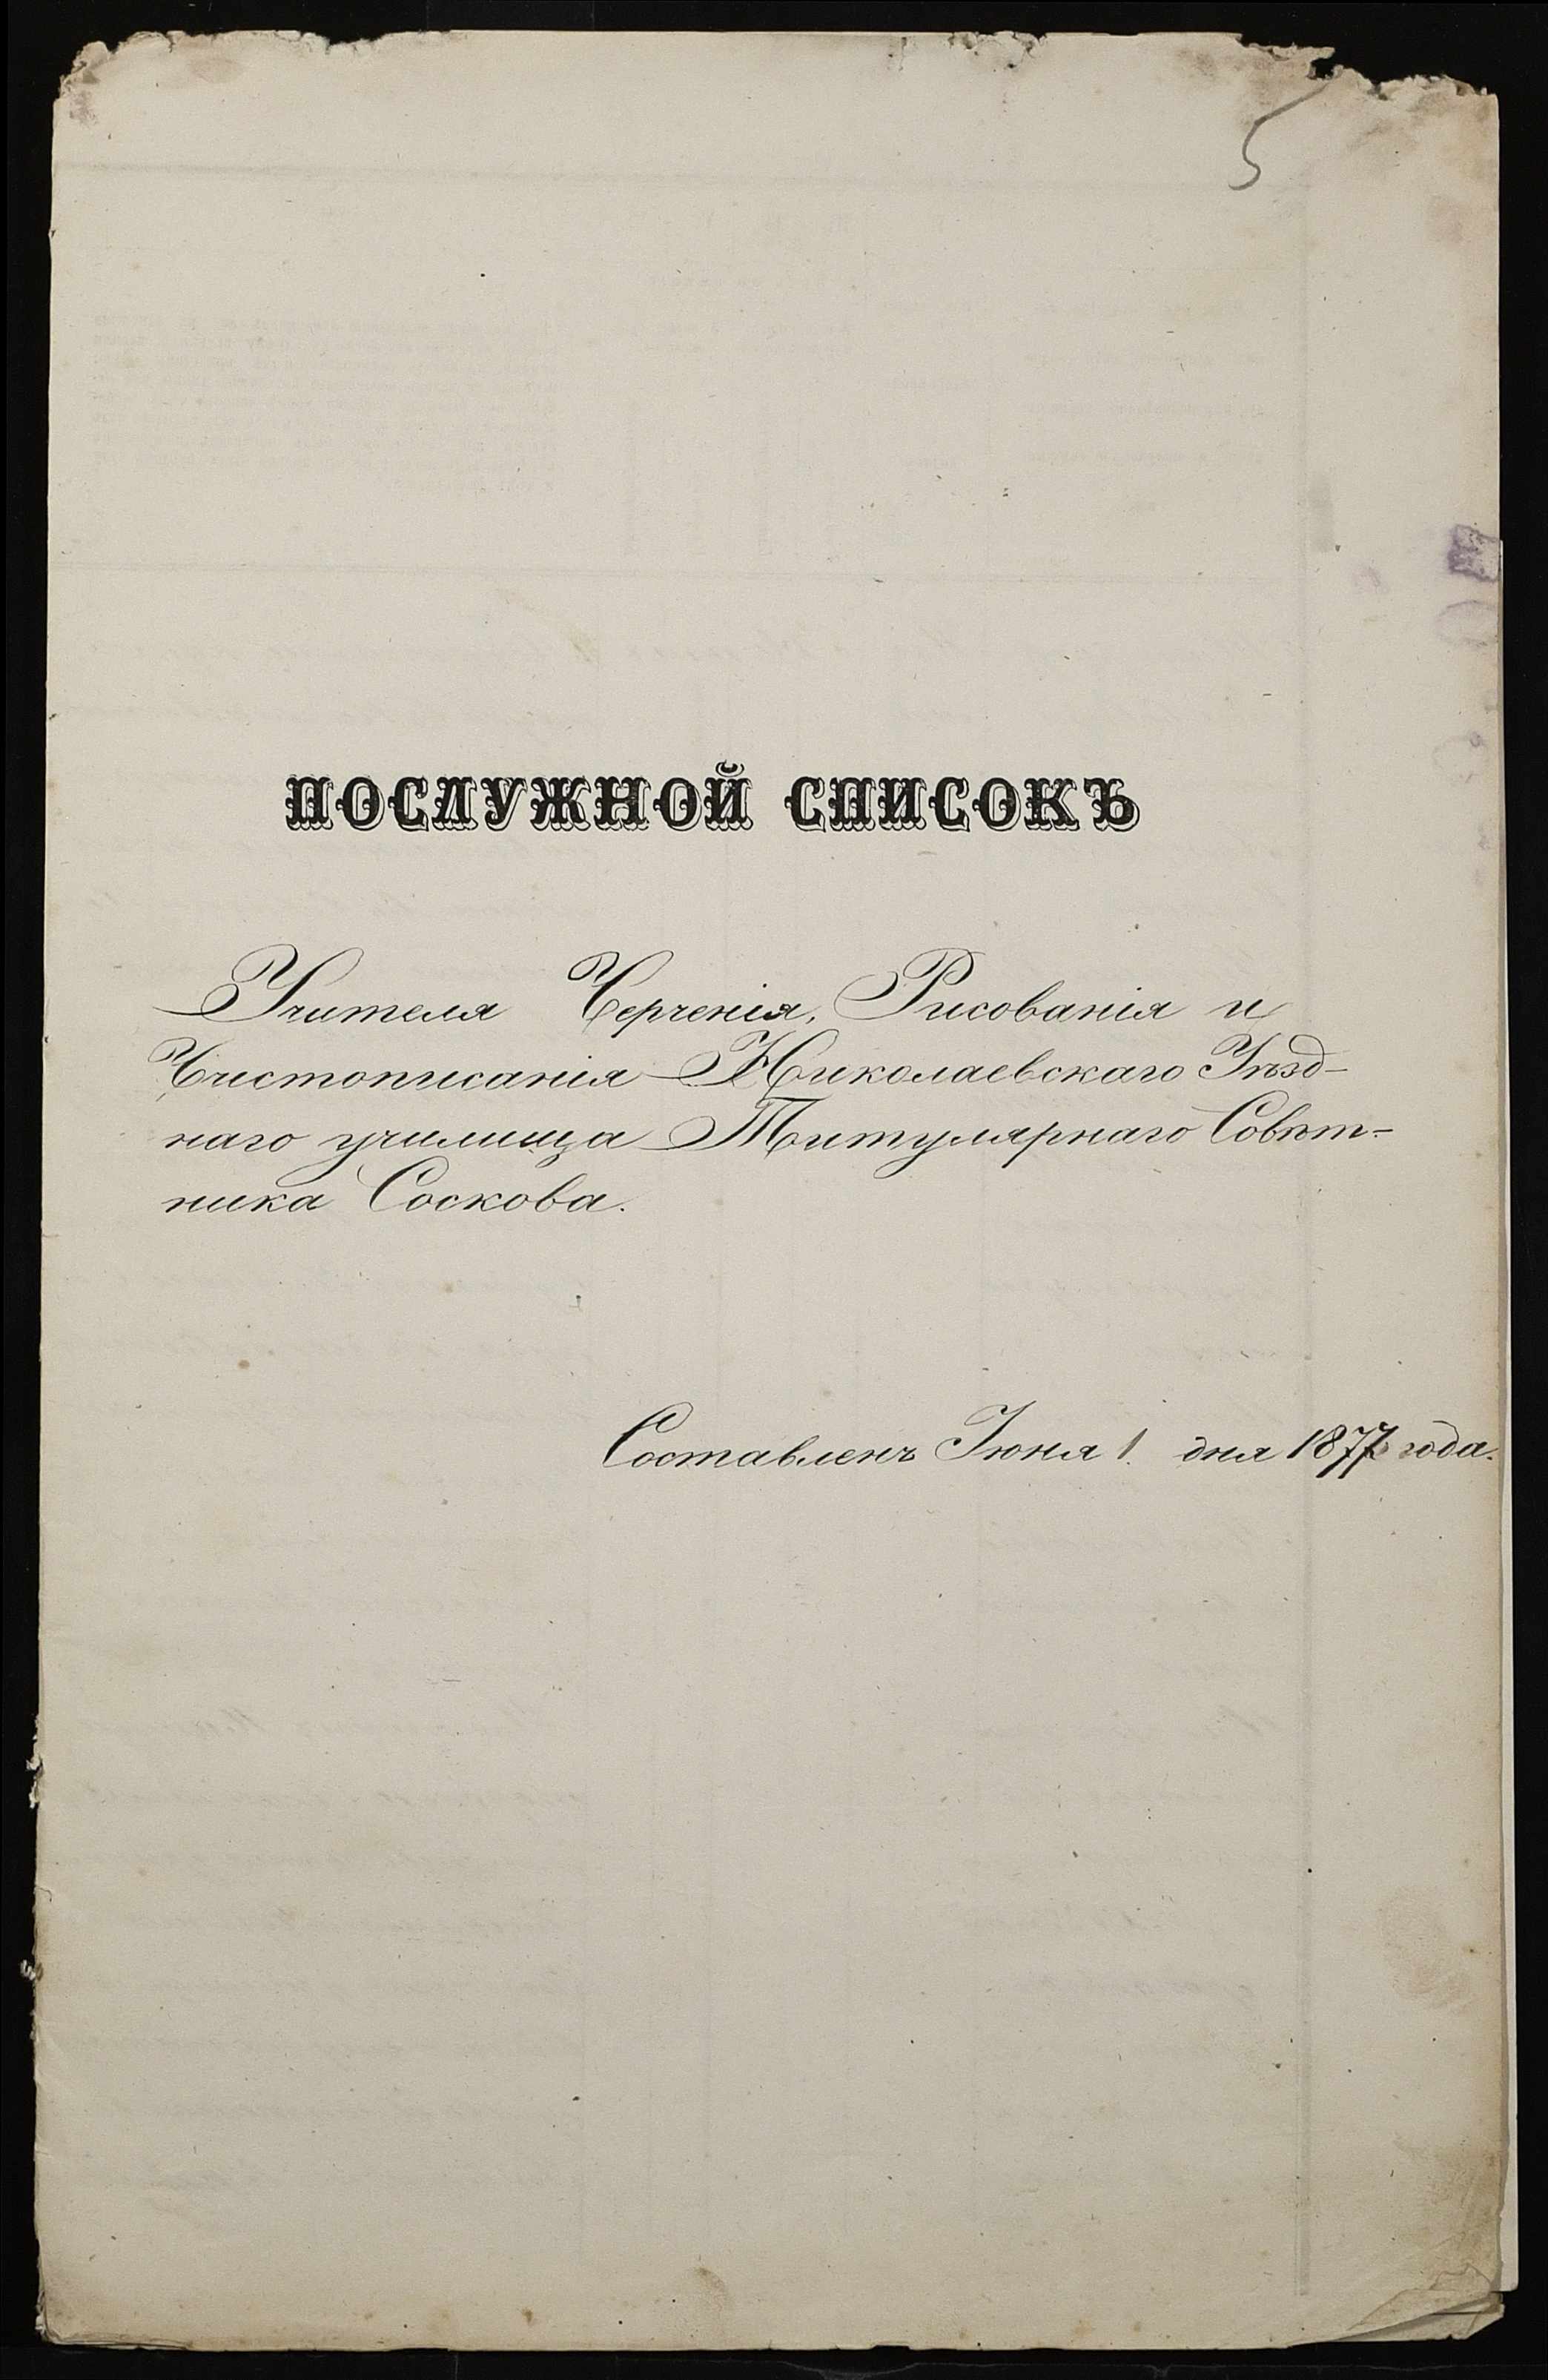 5
ПОСЛУЖНОЙ СПИСОКЪ
Учителя Черченія, Рисованія и
Чистописанія Николаевскаго Уѣзд-
наго училища Титулярнаго Совѣт-
ника Соскова.
Составленъ Іюня 1 дня 1877 года.